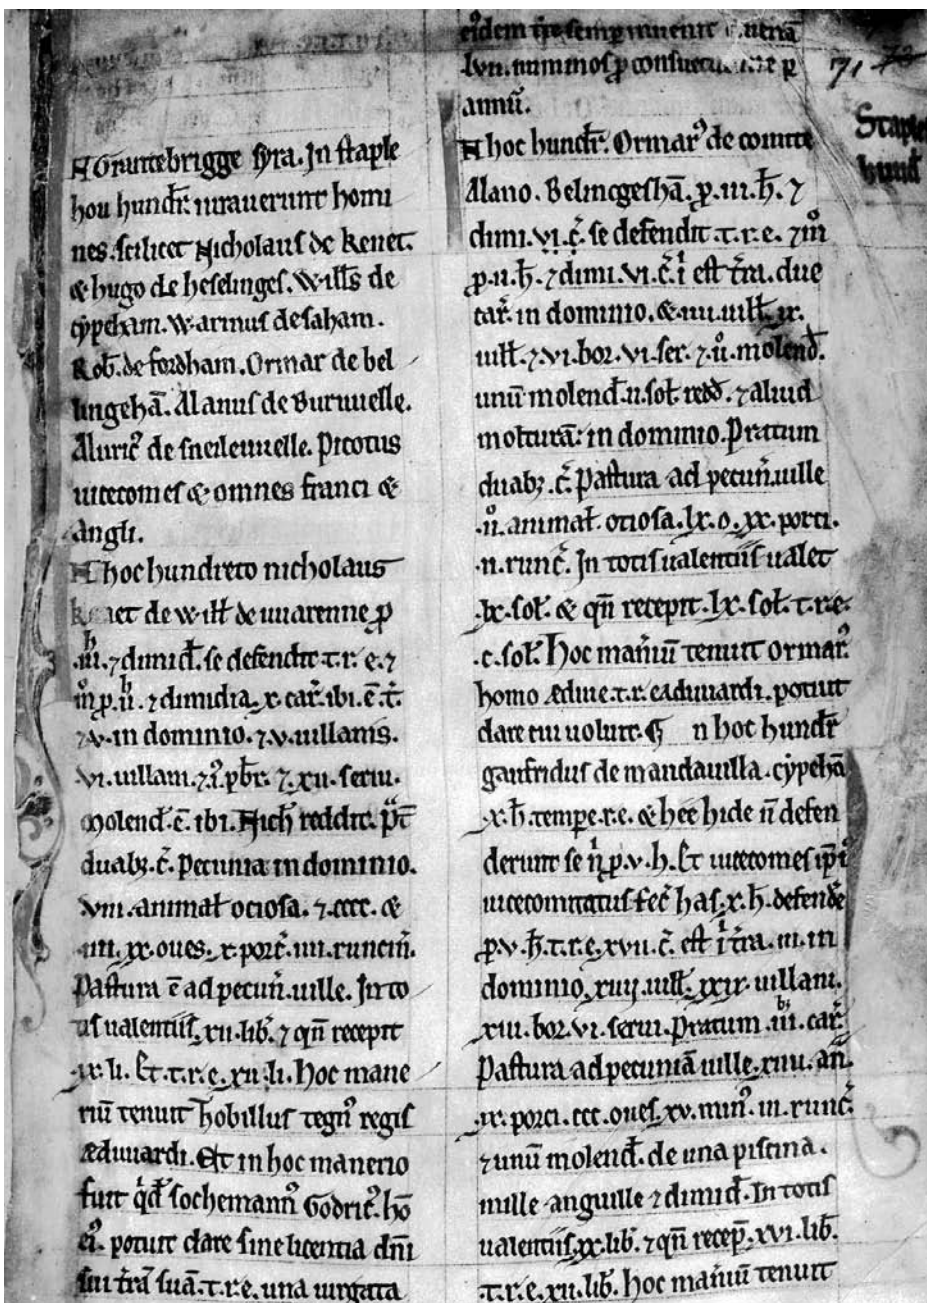 N Grantebrigge syra. In staple
hou hundr̄. iurauerunt homi
nes. scilicet Nicholaus de kenet.
& hugo de heselinges. Willͫs de
cypehām. Warinus de saham.
Rob. de fordham. Ormar de bel
lingehā. Alanus de Buruuelle.
Aluric᾽ de sneileuuelle. Picotus
uicecomes & omnes franci &
Angli.
N hoc hundreto nicholaus
kenet de Will̄ de uuarenne ꝑ
.iii. h ⁊ dimid̄. se defendit .t.r.e. ⁊
m̊ ꝑ. ii. h ⁊ dimidia. x. car̄. ibi. ē. t̄.
⁊ v. in dominio. ⁊ v. uillanis.
vi. uillani. ⁊ i. pb̄r. ⁊ xii. serui.
Molend̄. ē. ibi. Nich̄ reddit. p̄t
duabꝫ. c̄. Pecunia in dominio.
viii. animal̄ ociosa. ⁊ cccc. &
iiii. xx. oues. x. porc̄. iiii. runcin̄.
Pastura ē ad pecun̄. uille. In to
tis ualentiis. xii. lib̄. ⁊ qn̄ recepit
ix. li. Et. t.r.e. xii. li. Hoc mane
riū tenuit hobillus tegn᾽ regis
Æduuardi. Et in hoc manerio
fuit qd̄ sochemann᾽ Godric᾽. hō
ei᾽. potuit dare sine licentia dn̄i
sui t̄rā suā. t.r.e. una uirgata
eidem t̄re semꝑ
.lvii. nummos ꝓ ꝑ
annū.
N hoc hundr̄. Ormar᾽ de comite
Alano. Belincgeshā. ꝓ. iii. h̄. ⁊
dimi. vi. c̄. se defendit .t.r.e. ⁊ m̊
ꝓ. ii. h̄. ⁊ dimi. vi. c̄. ī est t̄ra. due
car̄. in dominio. & iiii. uill̄. ix.
uill̄. ⁊ vi. bor. vi. ser. ⁊ ii. molend̄.
unū molend̄. ii. sol̄. redd̄. ⁊ aliud
molturā: in dominio. Pratum
duabꝫ. c̄. Pastura ad pecun̄. uille
.ii. animal̄ ociosa. lx. o. xx. porci.
.ii. runc̄. In totis ualentiis ualet
.lx. sol̄. & qn̄ recepit. lx. sol̄. t.r.e.
.c. sol̄. Hoc man̄iū tenuit ormar᾽
homo ædiue. t.r. eaduuardi. potuit
dare cui uoluit. n hoc hundr̄
gaufridus de mandauilla. cypehā
.x. h̄. tempe. r.e. & hec hide n̄ defen
derunt se n̄ ꝑ. v. h. Et uicecomes ip̄i᾽
uicecomitatus fec̄ has. x. h̄. defende
ꝑ. v. h̄. t.r.e. xvii. c̄. est ī t̄ra. iii. in
dominio. xiiij. uill̄. xxix. uillani.
xiii. bor. vi. serui. Pratum .iii. bꝫ car̄.
Pastura ad pecuniā uille. xiiii. an̄.
.ix. porci. ccc. oues. xv. min᾽. iii. runc̄.
⁊ unū molend̄. de una piscina.
mille anguille ⁊ dimid̄. In totis
ualentiis. xx. lib̄. ⁊ qn̄ recep̄. xvi. lib̄.
.t.r.e. xii. lib̄. Hoc man̄iū tenuit
71
Staple
hund̄